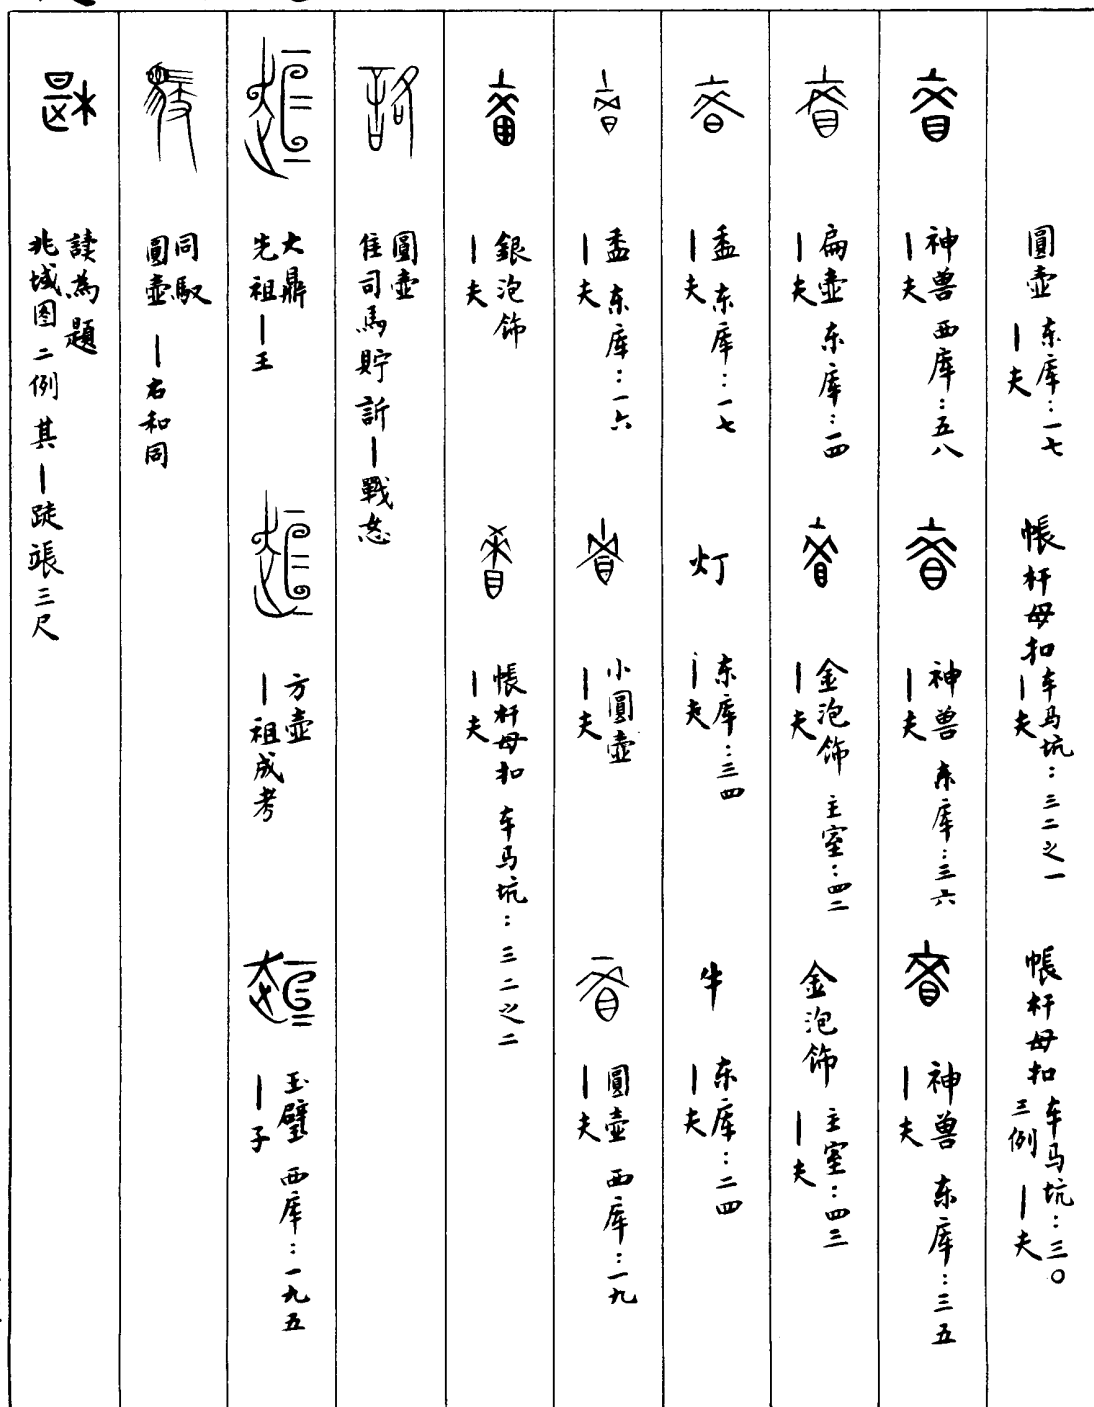 圓壺 东库：一七
｜夫
帳杆母扣 车马坑：三二之一
｜夫
帳杆母扣 车马坑：三〇
三例 ｜夫
神兽 西库：五八
｜夫
神兽 东库：三六
｜夫
神兽 东库：三五
｜夫
扁壺 东库：一四
｜夫
金泡饰 主室：四二
｜夫
金泡饰 主室：四三
｜夫
盉 东库：一七
｜夫
灯
东库：三四
｜夫
牛
东库：二四
｜夫
盉 东库：一六
｜夫
小圓壺
｜夫
圓壺 西库：一九
｜夫
銀泡饰
｜夫
帳杆母扣 车马坑：三二之二
｜夫
圓壺
隹司馬貯訢｜戰怒
大鼎
先祖｜王
方壺
｜祖成考
玉璧 西库：一九五
｜子
同馭
圓壺 ｜右和同
讀為題
兆域图二例 其｜跿張三尺